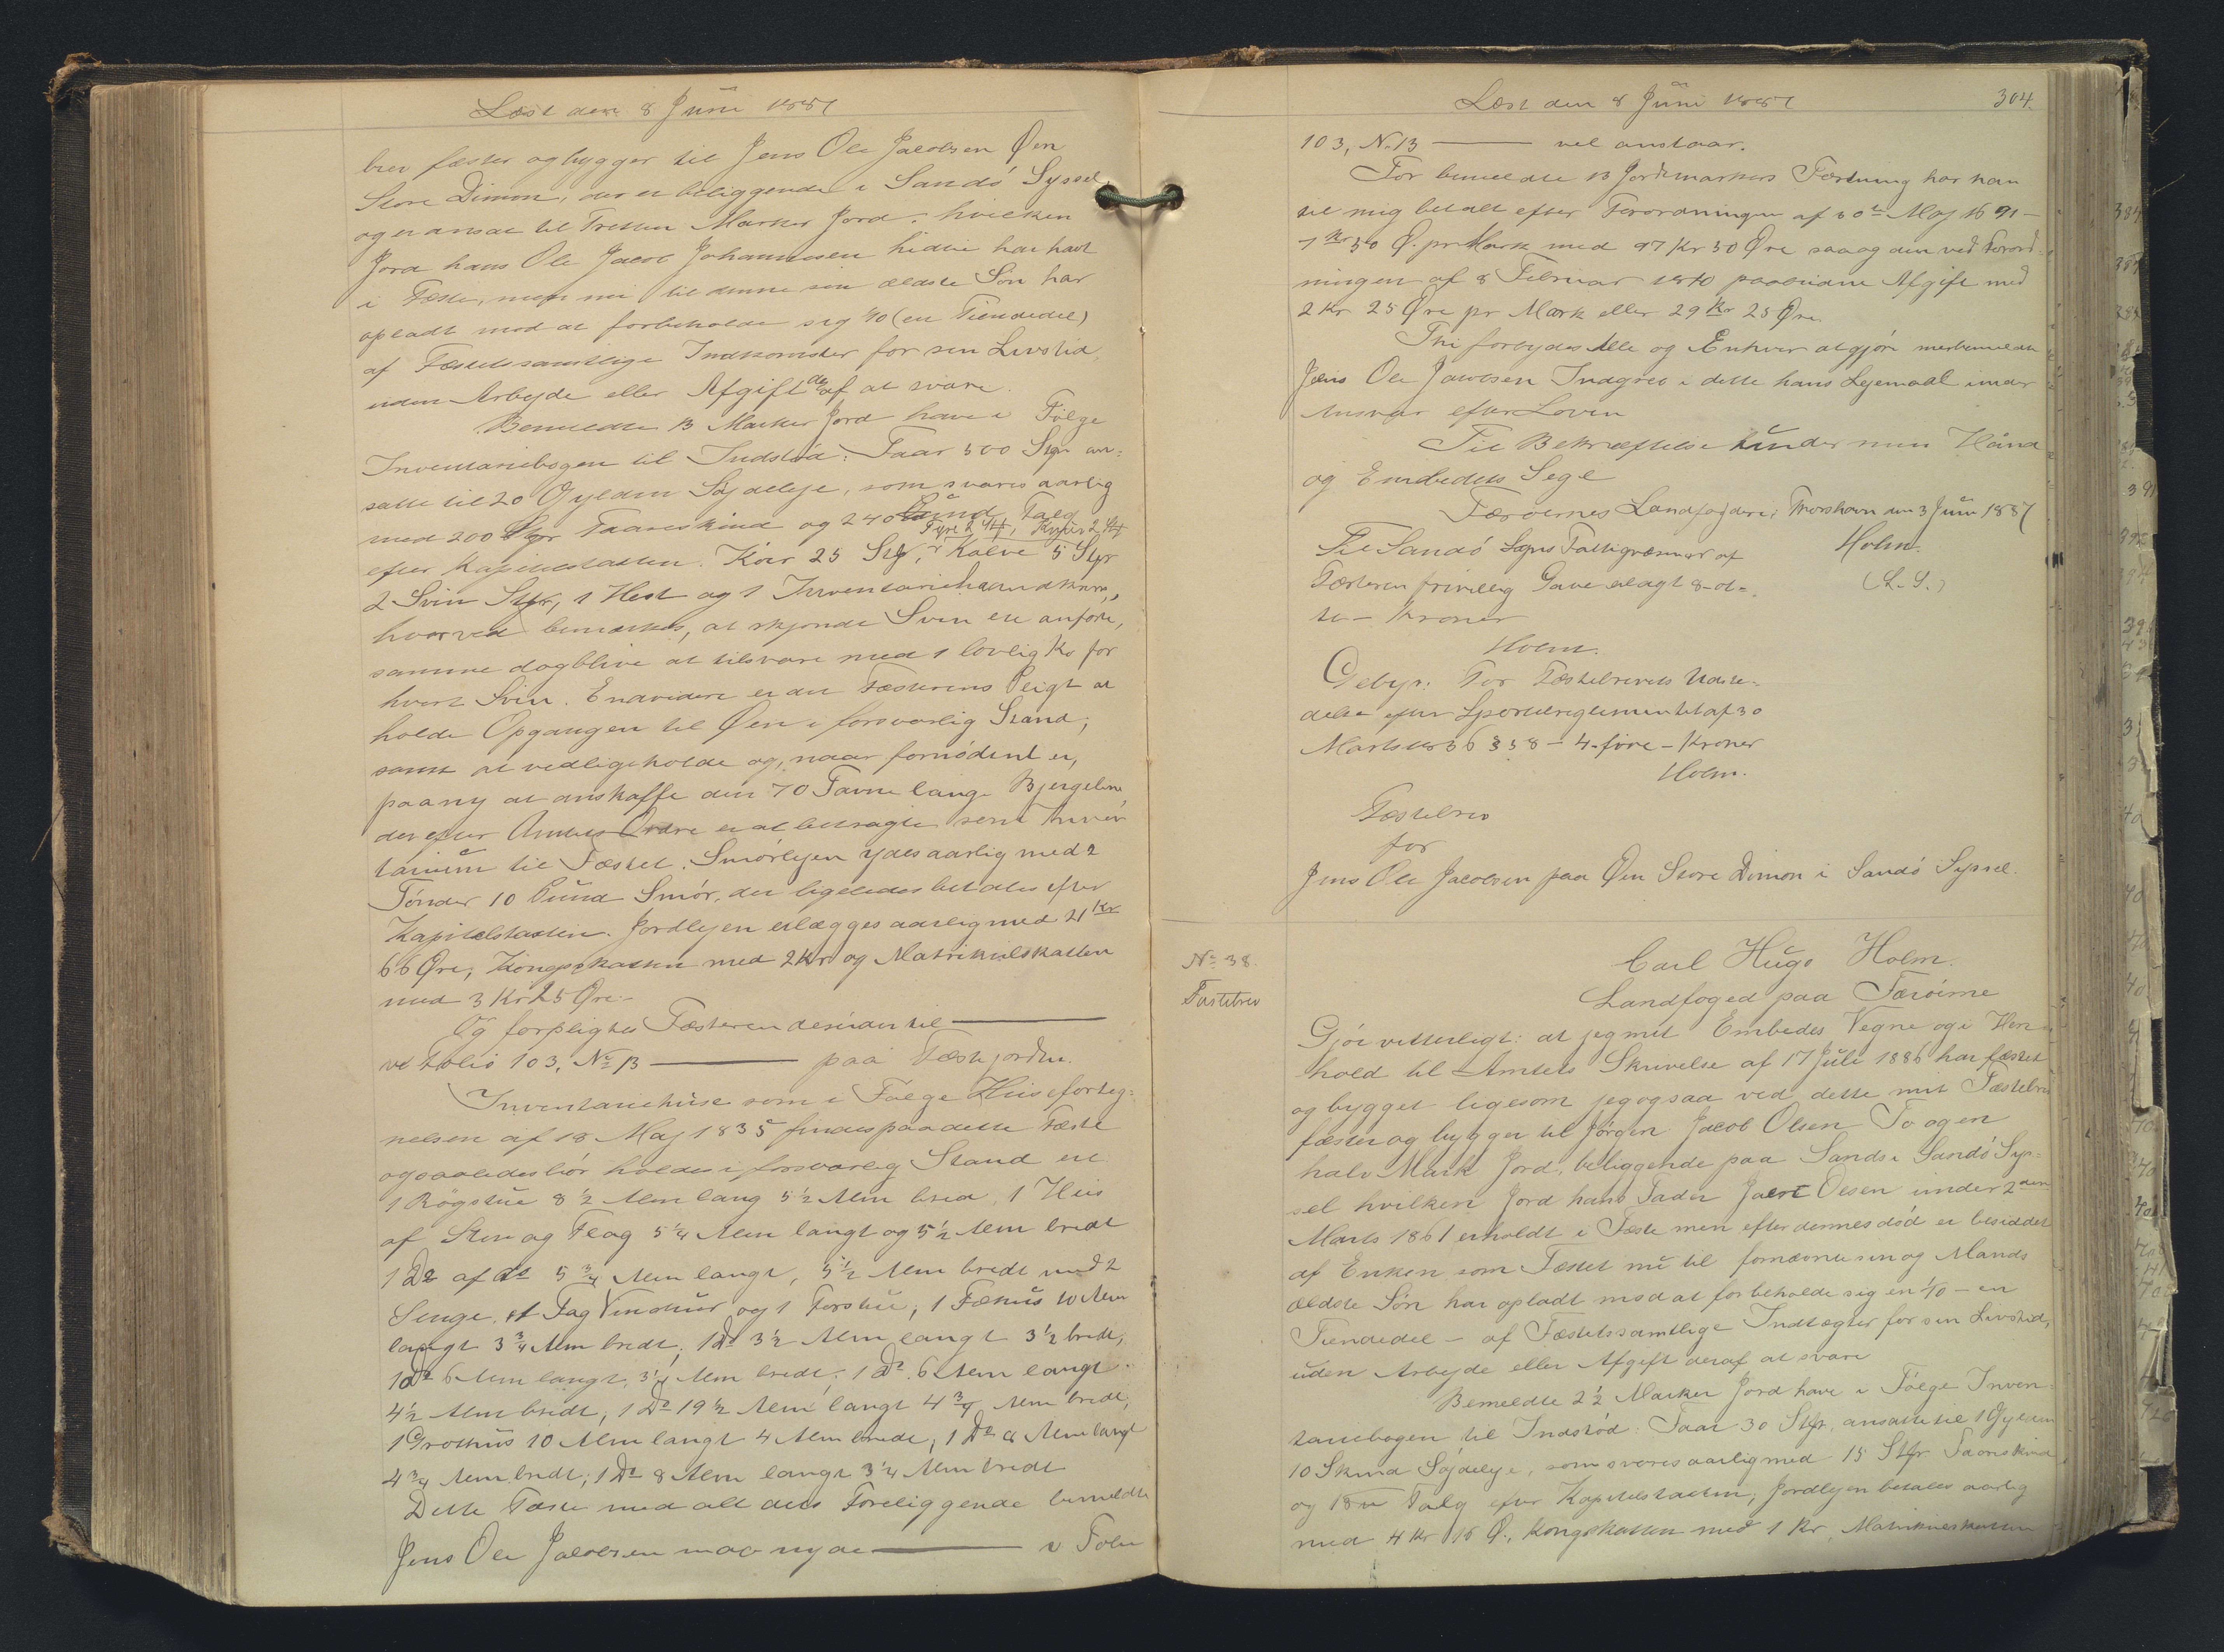 Læst den 8 Juni 1887
brev fæster og bygger til Jens Ole Jacobsen Øen
Store Dimon, der er beliggende i Sandö Syssel
og er ansat til Tretten Marker Jord, hvilken
Jord hans Ole Jacob Johannesen hidtil har havt
i Fæste, men nu til denne sin ældste Sön har
opladt mod at forbeholde sig 1/10 (en Tiendedel)
af Fæstets samtlige Indkomster for sin Livstid
uden Arbejde eller Afgift deraf at svare.
Bemeldte 13 Marker Jord have i Fölge
Inventariebogen til Indstöd: Faar 500 Stkr an-
satte til 20 Gylden Söjdeleje, som svares aarlig
med 200 Stkr Faareskind og 240 Pund Talg
efter Kapitelstaxten. Köer 25 Stk, Tyre 2 Stk, Kvier 2 Stk, Kalve 5 Stkr
2 Svin Stkr, 1 Hest og 1 Inventariehaandkværn,
hvorved bemærkes, at skjöndt Svin ere anförte,
samme dog blive at tilsvare med 1 lovlig Ko for
hvert Svin. Endvidere er det Fæsterens Pligt at
holde Opgangen til Øen i forsvarlig Stand,
samt at vedligeholde og, naar fornödent er,
paany at anskaffe den 70 Favne lange Bjergeline
der efter Amtets Ordre er at betragte som Inven
tarium til Fæstet. Smörlejen ydes aarlig med 2
Tönder 10 Pund Smör, der ligeledes betales efter
Kapitelstaxten. Jordlejen erlægges aarlig med 21 Kr
66 Øre, Kongeskatten med 2 Kr og Matrikulskatten
med 3 Kr 25 Øre.
Og forpligtes Fæsteren desuden til ———
vt Folio 103, No 13 ——— paa Fæstejorden.
Inventariehuse som i Fölge Huseforteg-
nelsen af 18 Maj 1835 findes paa dette Fæste
og saaledes bör holdes i forsvarlig Stand ere
1 Rögstue 8 1/2 Alen lang 5 1/2 Alen bred, 1 Hus
af Sten og Flag 5 1/4 Alen langt og 5 1/2 Alen bredt
1 Do af do 5 3/4 Alen langt, 5 1/2 Alen bredt med 2
Senge, et Fag Vinduer og 1 Forstue, 1 Fæhus 10 Alen
langt 3 3/4 Alen bredt, 1 Do 3 1/2 Alen langt 3 1/2 bredt,
1 Do 6 Alen langt, 3 1/4 Alen bredt, 1 Do 6 Alen langt
4 1/2 Alen bredt, 1 Do 19 1/2 Alen langt 4 3/4 Alen bredt,
1 Grothus 10 Alen langt 4 Alen bredt, 1 Do 8 Alen langt
4 3/4 Alen bredt, 1 Do 8 Alen langt 3 1/4 Alen bredt
Dette Fæste med alt dets Foreliggende bemeldte
Jens Ole Jacobsen maa nyde ——— v Folio
Læst den 8 Juni 1887
304.
103, No 13 ——— vel anstaar.
For bemeldte 13 Jordemarkers Fæstning har han
til mig betalt efter Forordningen af 30te Maj 1691 —
7 Kr 50 Ø. pr Mark med 97 Kr 50 Øre saa og den ved Forord-
ningen af 8 Februar 1840 paabudne Afgift med
2 Kr 25 Øre pr Mark eller 29 Kr 25 Øre.
Thi forbydes Alle og Enhver at gjöre merbemeldte
Jens Ole Jacobsen Indgreb i dette hans Lejemaal under
Ansvar efter Loven
Til Bekræftelse under min Haand
og Embedets Segl
Færöernes Landfogderi, Thorshavn den 3 Juni 1887
Holm.
(L. S.)
Til Sandö Sogns Fattigvæsen er af
Fæsteren frivillig Gave erlagt 8 - ot-
te - Kroner
Holm.
Gebyr: For Fæstebrevets Udste-
delse efter Sportelreglementet af 30
Marts 1836 § 38 - 4 - fire - Kroner
Holm.
Fæstebrev
for
Jens Ole Jacobsen paa Øen Store Dimon i Sandö Syssel.
No 38.
Fæstebrev
Carl Hugo Holm.
Landfoged paa Færöerne
Gjör vitterligt: at jeg mit Embedes Vegne og i Hen-
hold til Amtets Skrivelse af 17 Juli 1886 har fæstet
og bygget ligesom jeg ogsaa ved dette mit Fæstebrev
fæster og bygger til Jörgen Jacob Olsen To og en
halv Mark Jord, beliggende paa Sand i Sandö Sys-
sel hvilken Jord hans Fader Olsen under 2den
Marts 1861 erholdt i Fæste men efter dennes död er besiddet
af Enken som Fæstet nu til fornævnte sin og Mands
ældste Sön har opladt mod at forbeholde sig en 1/10 - en
Tiendedel - af Fæstets samtlige Indtægter for sin Livstid,
uden Arbejde eller Afgift deraf at svare
Bemeldte 2 1/2 Marker Jord have i Fölge Inven-
tariebogen til Indstöd: Faar 30 Stkr. ansatte til 1 Gylden
10 Skind Söjdeleje, som svares aarlig med 15 Stkr Faareskind
og 18 Talg efter Kapitelstaxten, Jordlejen betales aarlig
med 4 Kr 15 Ø., Kongeskatten med 1 Kr, Matrikulskatten